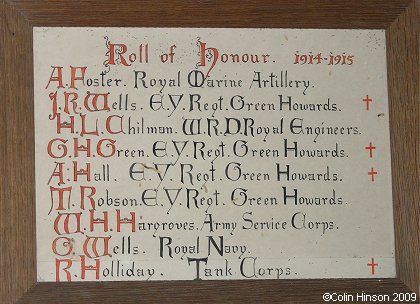 Roll of Honour. 1914-1915
A. Foster. Royal Marine Artillery.
J. R. Wells. E. Y. Regt. Green Howards. †
H. L. Chilman. W. R. D. Royal Engineers.
G. H. Green. E. Y. Regt. Green Howards. †
A. Hall. E. Y. Regt. Green Howards. †
T. Robson. E. Y. Regt. Green Howards.
W. H. Hargroves. Army Service Corps.
G. Wells. Royal Navy.
R. Holliday. Tank Corps. †
©Colin Hinson 2009